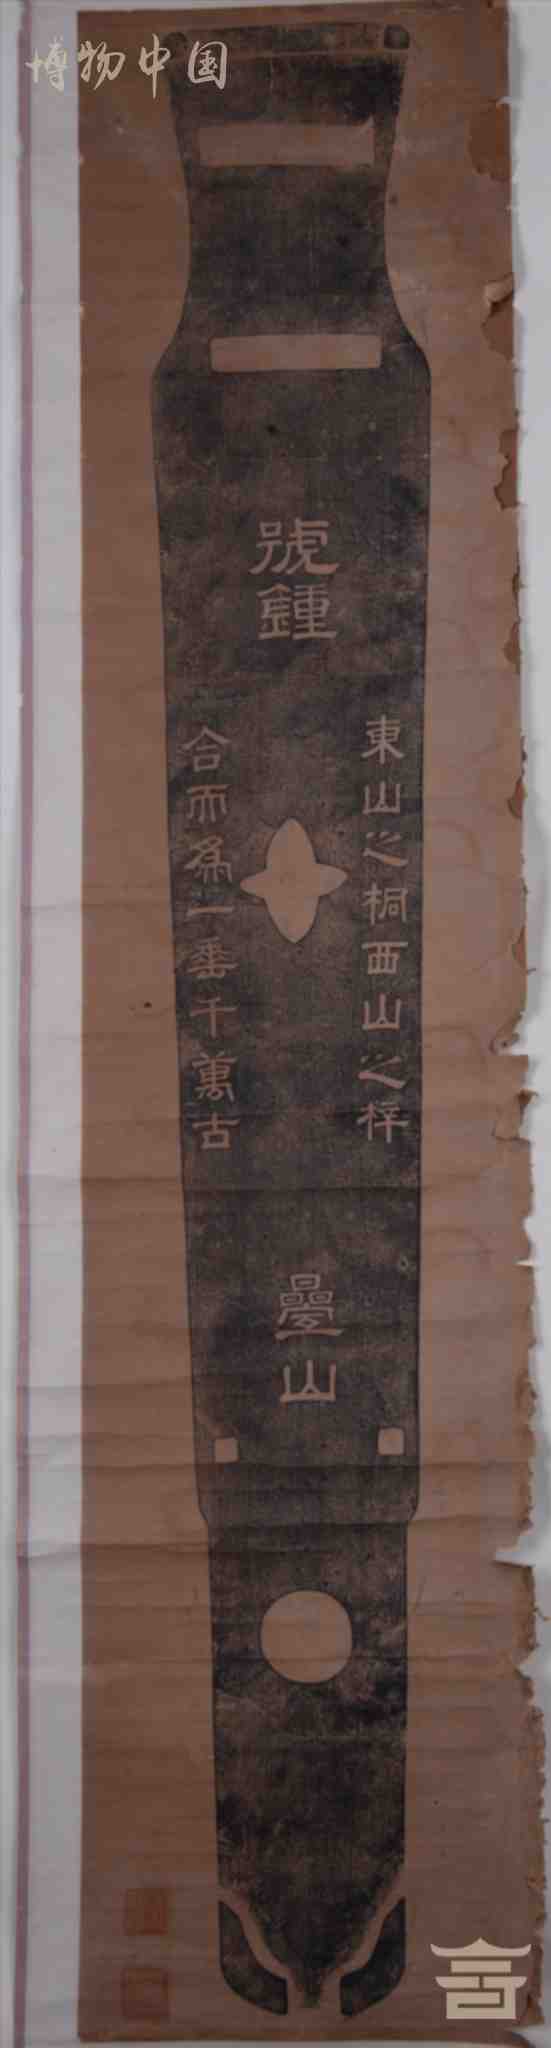 博物中国
號鍾
東山之桐西山之梓
合而為一垂千萬古
疊山